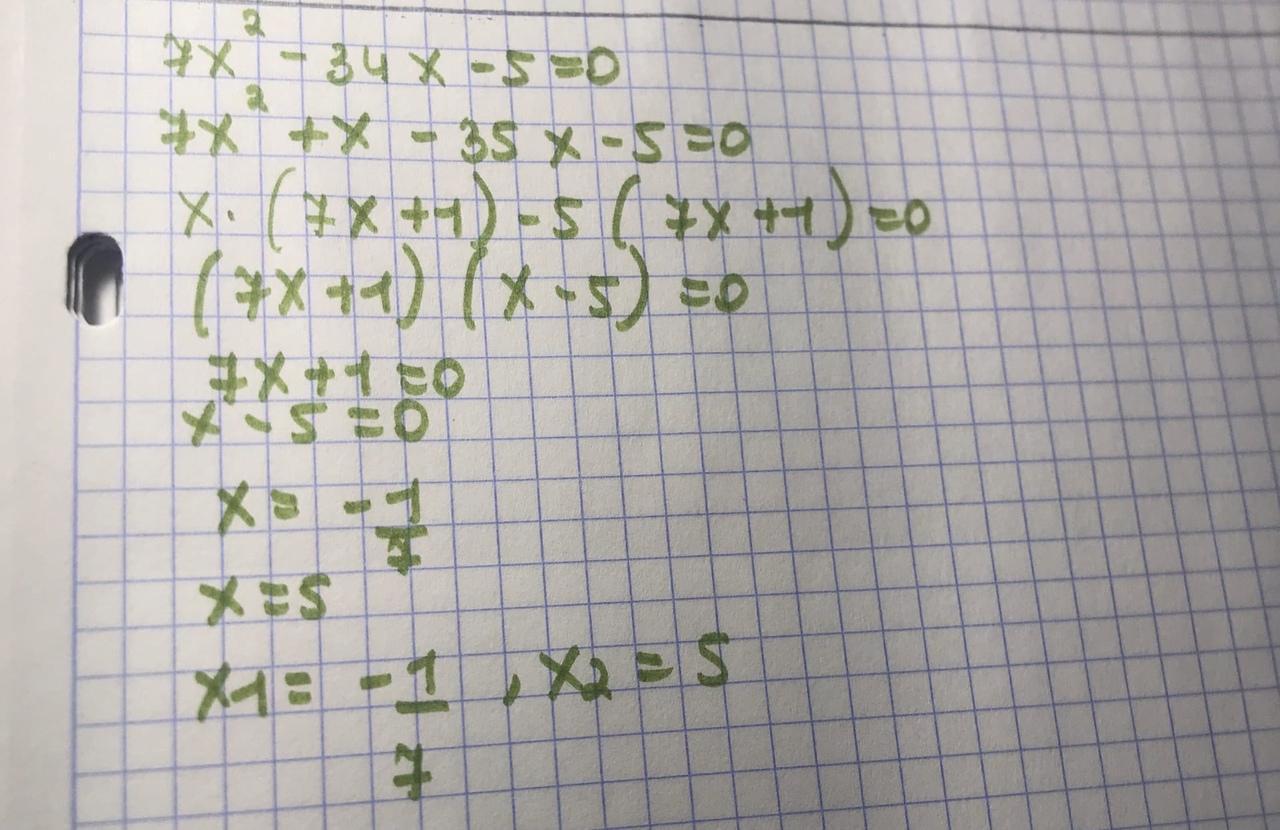 7x² - 34x - 5 = 0
7x² + x - 35x - 5 = 0
x · (7x + 1) - 5 (7x + 1) = 0
(7x + 1) (x - 5) = 0
7x + 1 = 0
x - 5 = 0
x = - 1/7
x = 5
x1 = - 1/7 , x2 = 5